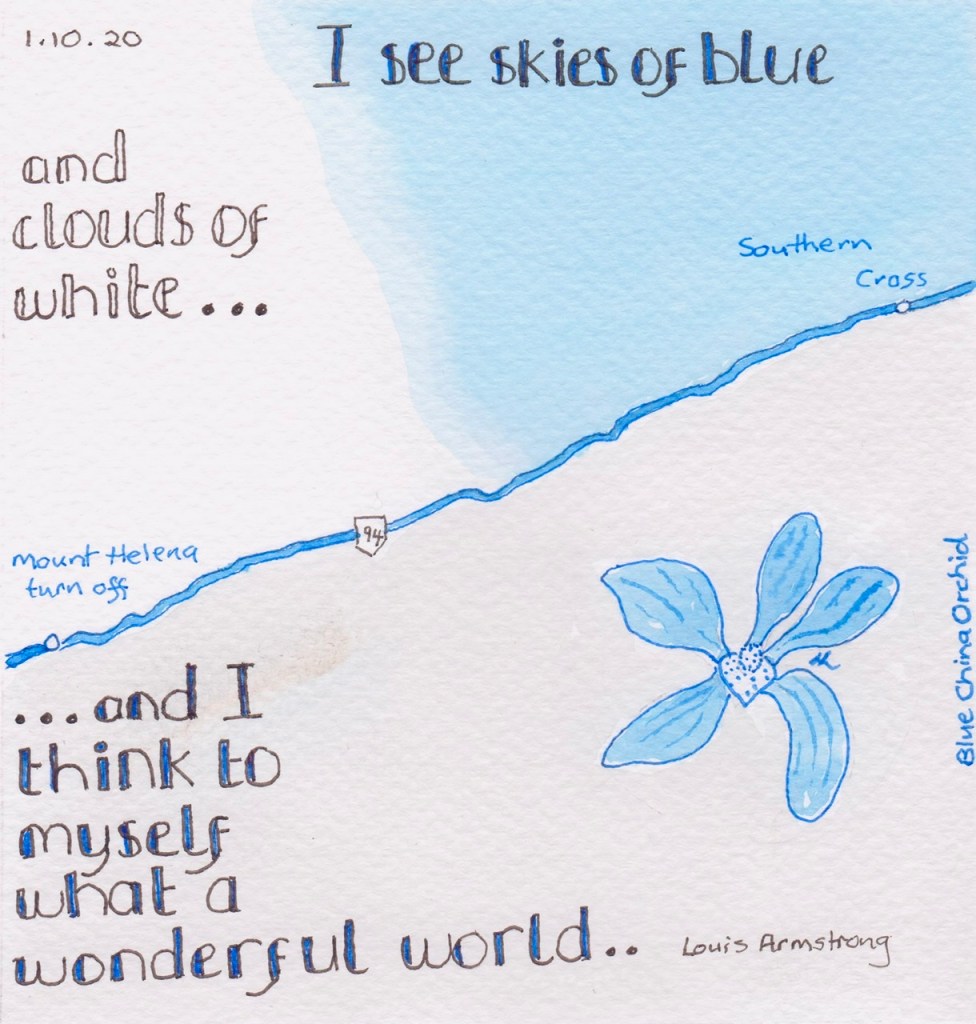 1.10.20
I see skies of blue
and
clouds of
white...
Southern
Cross
94
Mount Helena
turn off
Blue China Orchid
...and I
think to
myself
what a
wonderful world..
Louis Armstrong